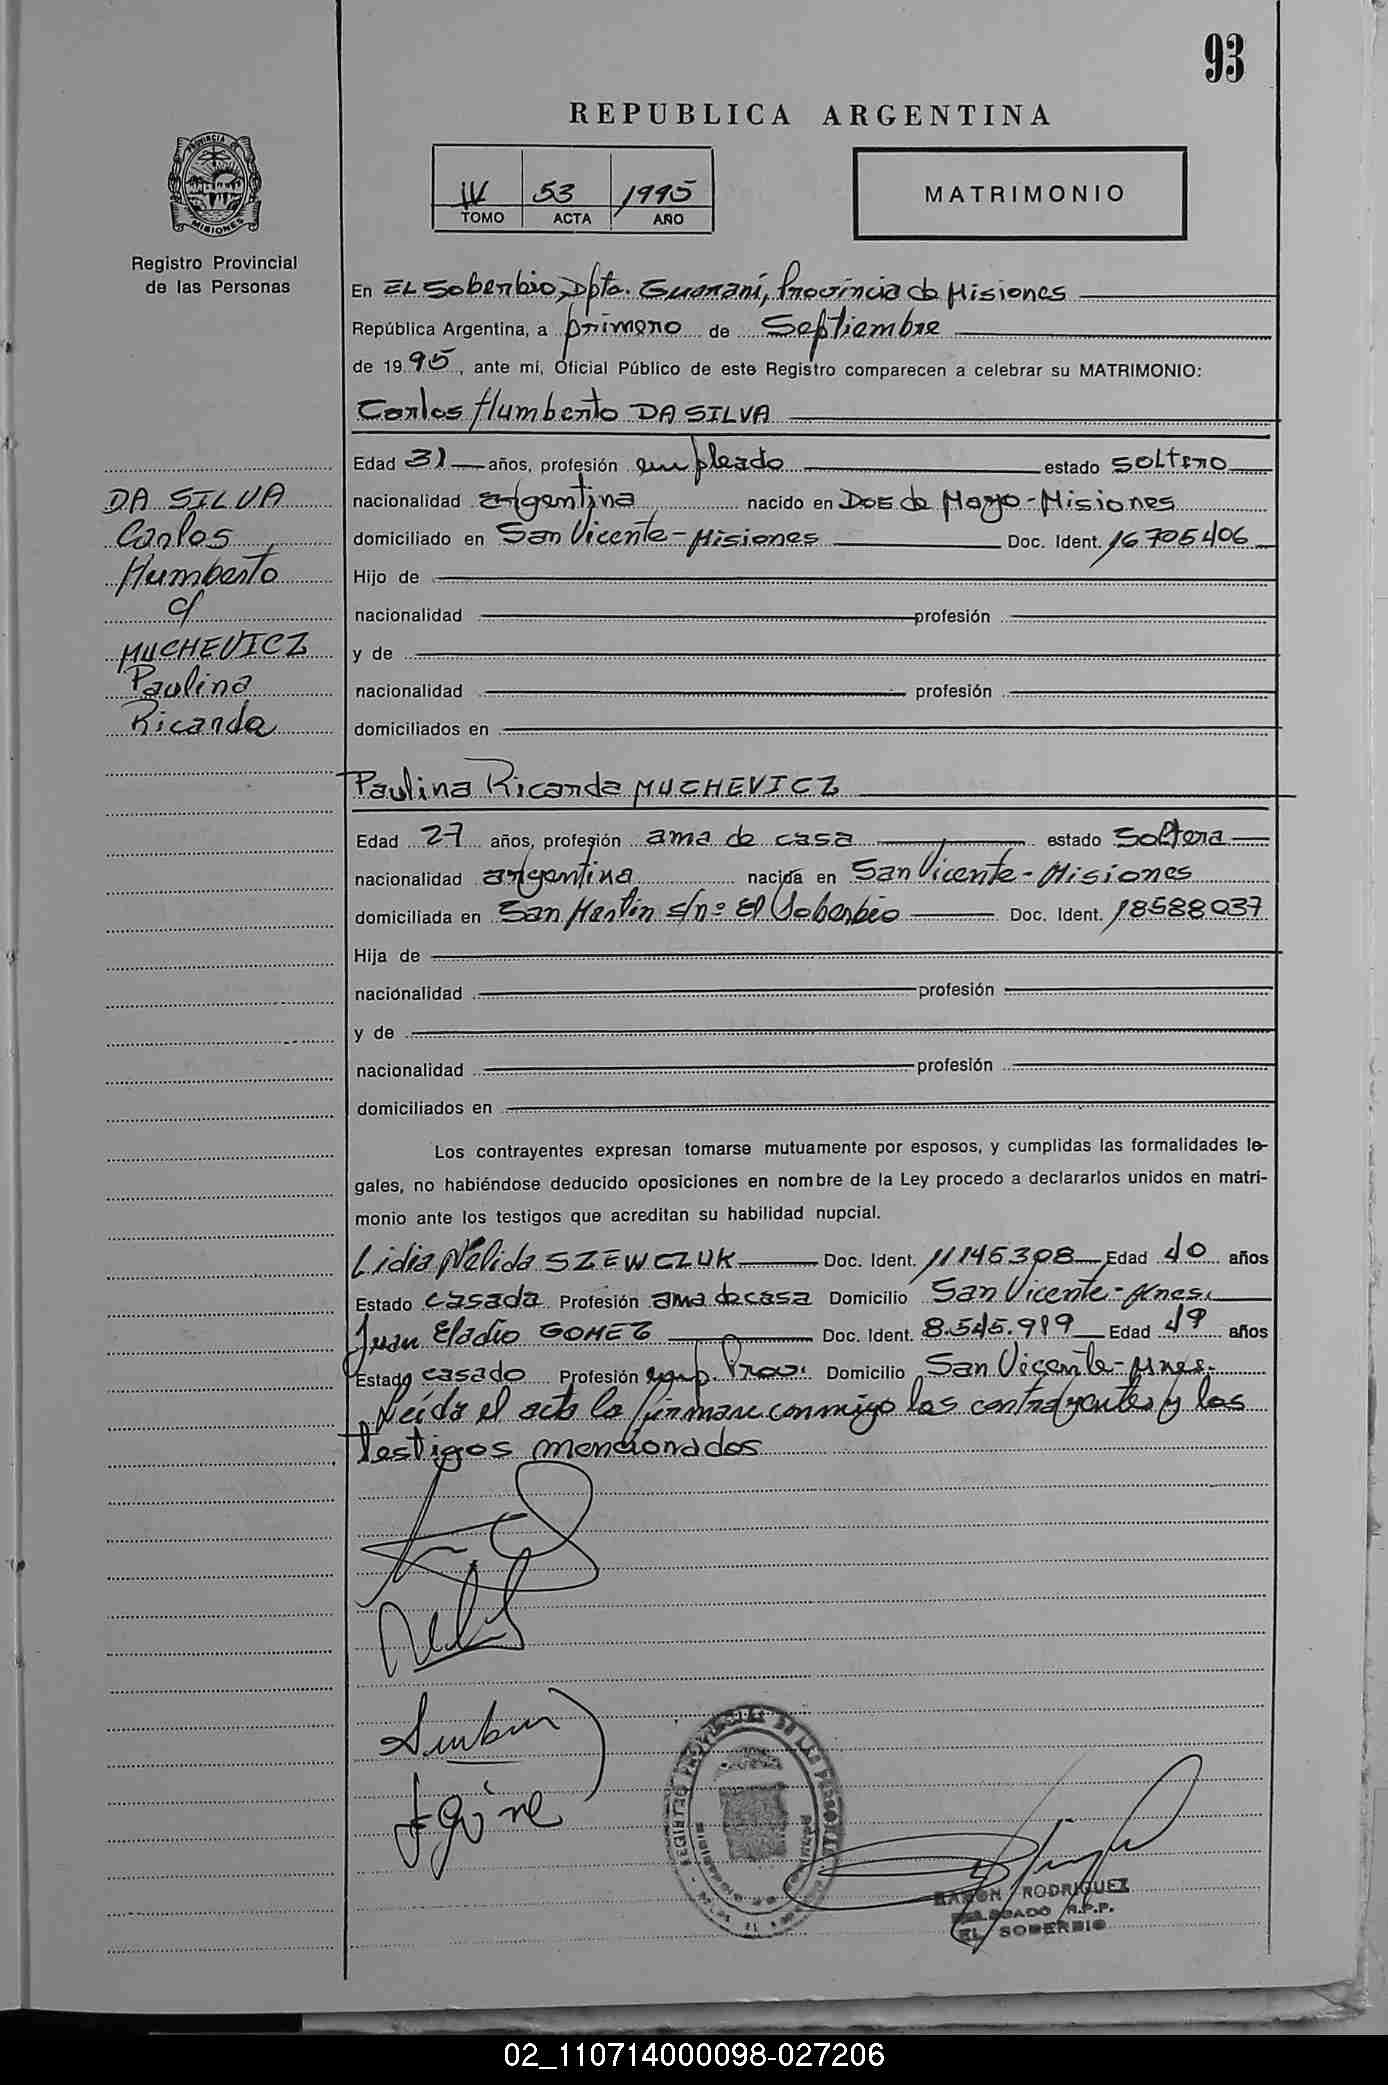 93
REPUBLICA ARGENTINA
PROVINCIA DE
MISIONES
Registro Provincial
de las Personas
IV 53 1995
TOMO ACTA AÑO
MATRIMONIO
En EL Soberbio, Dpto. Guaraní, Provincia de Misiones
República Argentina, a primero de Septiembre
de 19 95, ante mí, Oficial Público de este Registro comparecen a celebrar su MATRIMONIO:
Carlos Humberto DA SILVA
Edad 31 años, profesión empleado estado soltero
nacionalidad argentina nacido en Dos de Mayo - Misiones
domiciliado en San Vicente - Misiones Doc. Ident. 16.705406
Hijo de
nacionalidad profesión
y de
nacionalidad profesión
domiciliados en
DA SILVA
Carlos
Humberto
c/
MUCHEVICZ
Paulina
Ricarda
Paulina Ricarda MUCHEVICZ
Edad 27 años, profesión ama de casa estado soltera
nacionalidad argentina nacida en San Vicente - Misiones
domiciliada en San Martin s/nº El Soberbio Doc. Ident. 18588037
Hija de
nacionalidad profesión
y de
nacionalidad profesión
domiciliados en
Los contrayentes expresan tomarse mutuamente por esposos, y cumplidas las formalidades le-
gales, no habiéndose deducido oposiciones en nombre de la Ley procedo a declararlos unidos en matri-
monio ante los testigos que acreditan su habilidad nupcial.
Lidia Nélida SZEWCZUK Doc. Ident. 11145308 Edad 40 años
Estado casada Profesión ama de casa Domicilio San Vicente - Mnes.
Juan Eladio GOMEZ Doc. Ident. 8.545.919 Edad 49 años
Estado casado Profesión emp. Prov. Domicilio San Vicente - Mnes.
Leida el acta la firman conmigo los contrayentes y los
testigos mencionados
REGISTRO PROVINCIAL DE LAS PERSONAS
RAMON RODRIGUEZ
DELEGADO R.P.P.
EL SOBERBIO
02_110714000098-027206